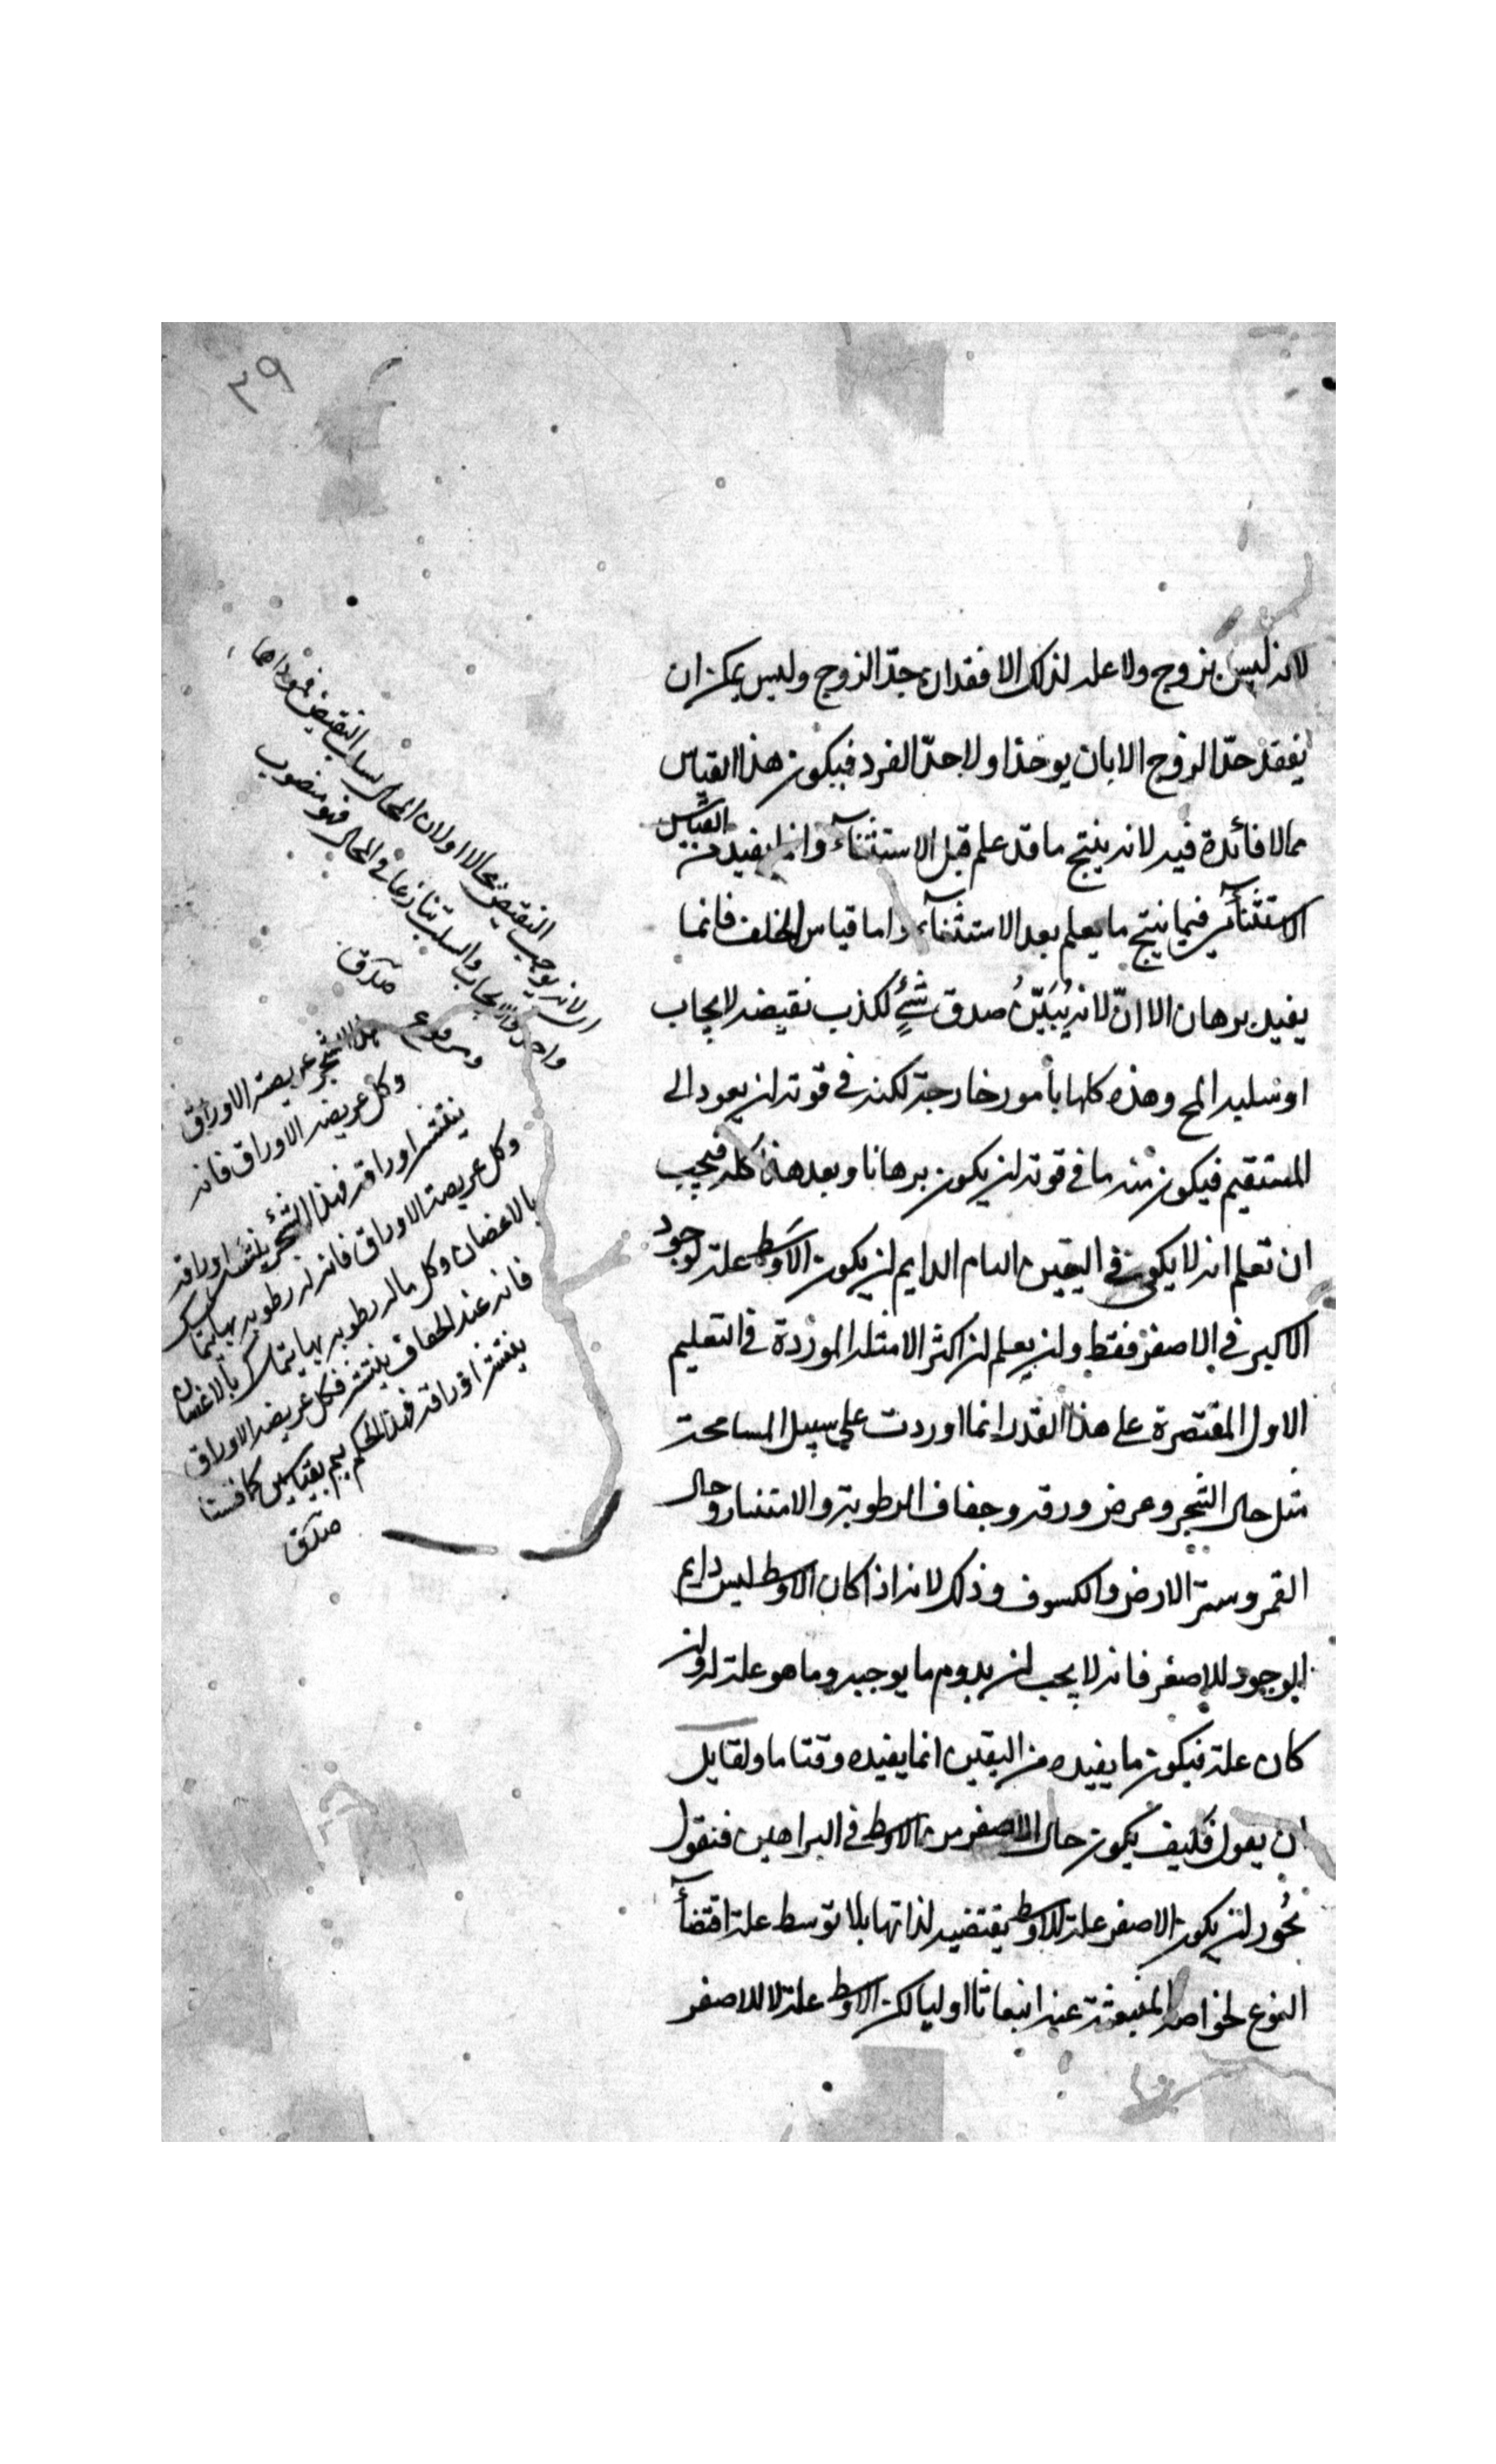 ٢٩
لانه ليس بزوج ولا علة لذلك الا فقدان حدّ الزوج وليس يمكن ان
يفقد حدّ الزوج الا بان يوخذ اولا حدّ الفرد فيكون هذا القياس
مما لا فائدة فيه لانه ينتج ما قد علم قبل الاستثناء وانما يفيد من القياس
الاستثنائي فيما ينتج ما يعلم بعد الاستثناء واما قياس الخلف فانما
يفيد برهان الا انّ لانه يُبَيّنُ صدق شئٍ لكذب نقيضه لايجاب
او سلبه المح وهذه كلها بأمور خارجة لكنه في قوته ان يعود الى
المستقيم فيكون منه ما في قوته ان يكون برهانا وبعد هذا كله فيجب
ان تعلم انه لا يكون في اليقين التام الدايم ان يكون الاوسط علة لوجود
الاكبر في الاصغر فقط وان يعلم ان اكثر الامثلة الموردة في التعليم
الاول المقتصرة على هذا القدر انما اوردت على سبيل المسامحة
مثل حال الشجر وعرض ورقه وجفاف الرطوبة والانتشار وحال
القمر وستر الارض والكسوف وذلك لانه اذا كان الاوسط ليس دايم
الوجود للاصغر فانه لا يجب ان يدوم ما يوجبه وما هو علة له وان
كان علة فيكون ما يفيده من اليقين انما يفيده وقتا ما ولقايل
ان يقول فكيف يكون حال الاصغر من الاوسط في البراهين فنقول
يجوز ان يكون الاصغر علة للاوسط يقتضيه لذاتها بلا توسط علة اقتضاء
النوع لخواصه المنبعثة عنه انبعاثا اوليا لكن الاوسط علة لا للاصغر
لانه يوجب النقيض محالا اولان المحال سلب النقيض
واحد والايجاب والسلب تنازعا في المحال فهو منصوب
ومرفوع صدق
هذا الشجر عريضة الاوراق
وكل عريضة الاوراق فانه
ينتشر اوراقه فهذا الشجر ينتشر اوراقه
وكل عريضة الاوراق فانه له رطوبة بها يتماسك
بالاغصان وكل ما له رطوبة بها يتماسك بالاغصان
فانه عند الجفاف ينتشر فكل عريضة الاوراق
ينتشر اوراقه فهذا الحكم يتم بقياسين
صدق